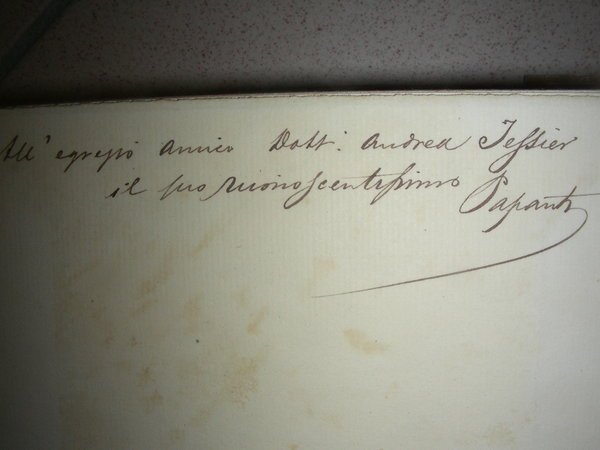 All' egregio amico Dott. Andrea Tessier
il suo riconoscentissimo Papanti